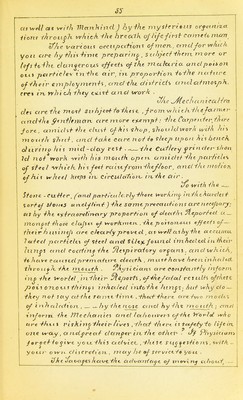 55
as well as with Mankind) by the mysterious organiza
tions through which the breath of life first caused man
The various occupations of men, and for which
you are by this time preparing, subject them more or
less to the dangerous effects of the malaria and poison
ous particles in the air, in proportion to the nature
of their employments, and the districts and atmosph
eres in which they exist and work.
The Mechanical tra
des are the most subject to these, from which the farmer
and the gentleman are more exempt: the Carpenter, there
fore, amidst the dust of his shop, should work with his
mouth shut, and take care not to sleep upon his bench
during his mid-day rest — the Cutlery grinder shou
ld not work with his mouth open amidst the particles
of steel which his feet raise from the floor, and the motion
of his wheel keeps in circulation in the air.
So with the —
Stone-cutter, (and particularly those working in the hardest
sorts of stones and flint) the same precautions are necessary;
as by the extraordinary proportion of deaths Reported a—
mongst those classes of workmen, the poisonous effects of—
their business are clearly proved, as well as by the accumu
lated particles of steel and silex found imbedded in their
lungs and coating the Respiratory organs, and which,
to have caused premature death, must have been inhaled
through the mouth. Physicians are constantly inform
ing the world, in their Reports, of the fatal results of these
poisonous things inhaled into the lungs; but why do—
they not say at the same time, that there are two modes
of inhalation, — by the nose and by the mouth; and
inform the Mechanics and labourers of the World who
are thus risking their lives, that there is safety to life in
one way, and great danger in the other? If Physicians
forget to give you this advice, these suggestions, with—
your own discretion, may be of service to you.
The Savages have the advantage of moving about, —